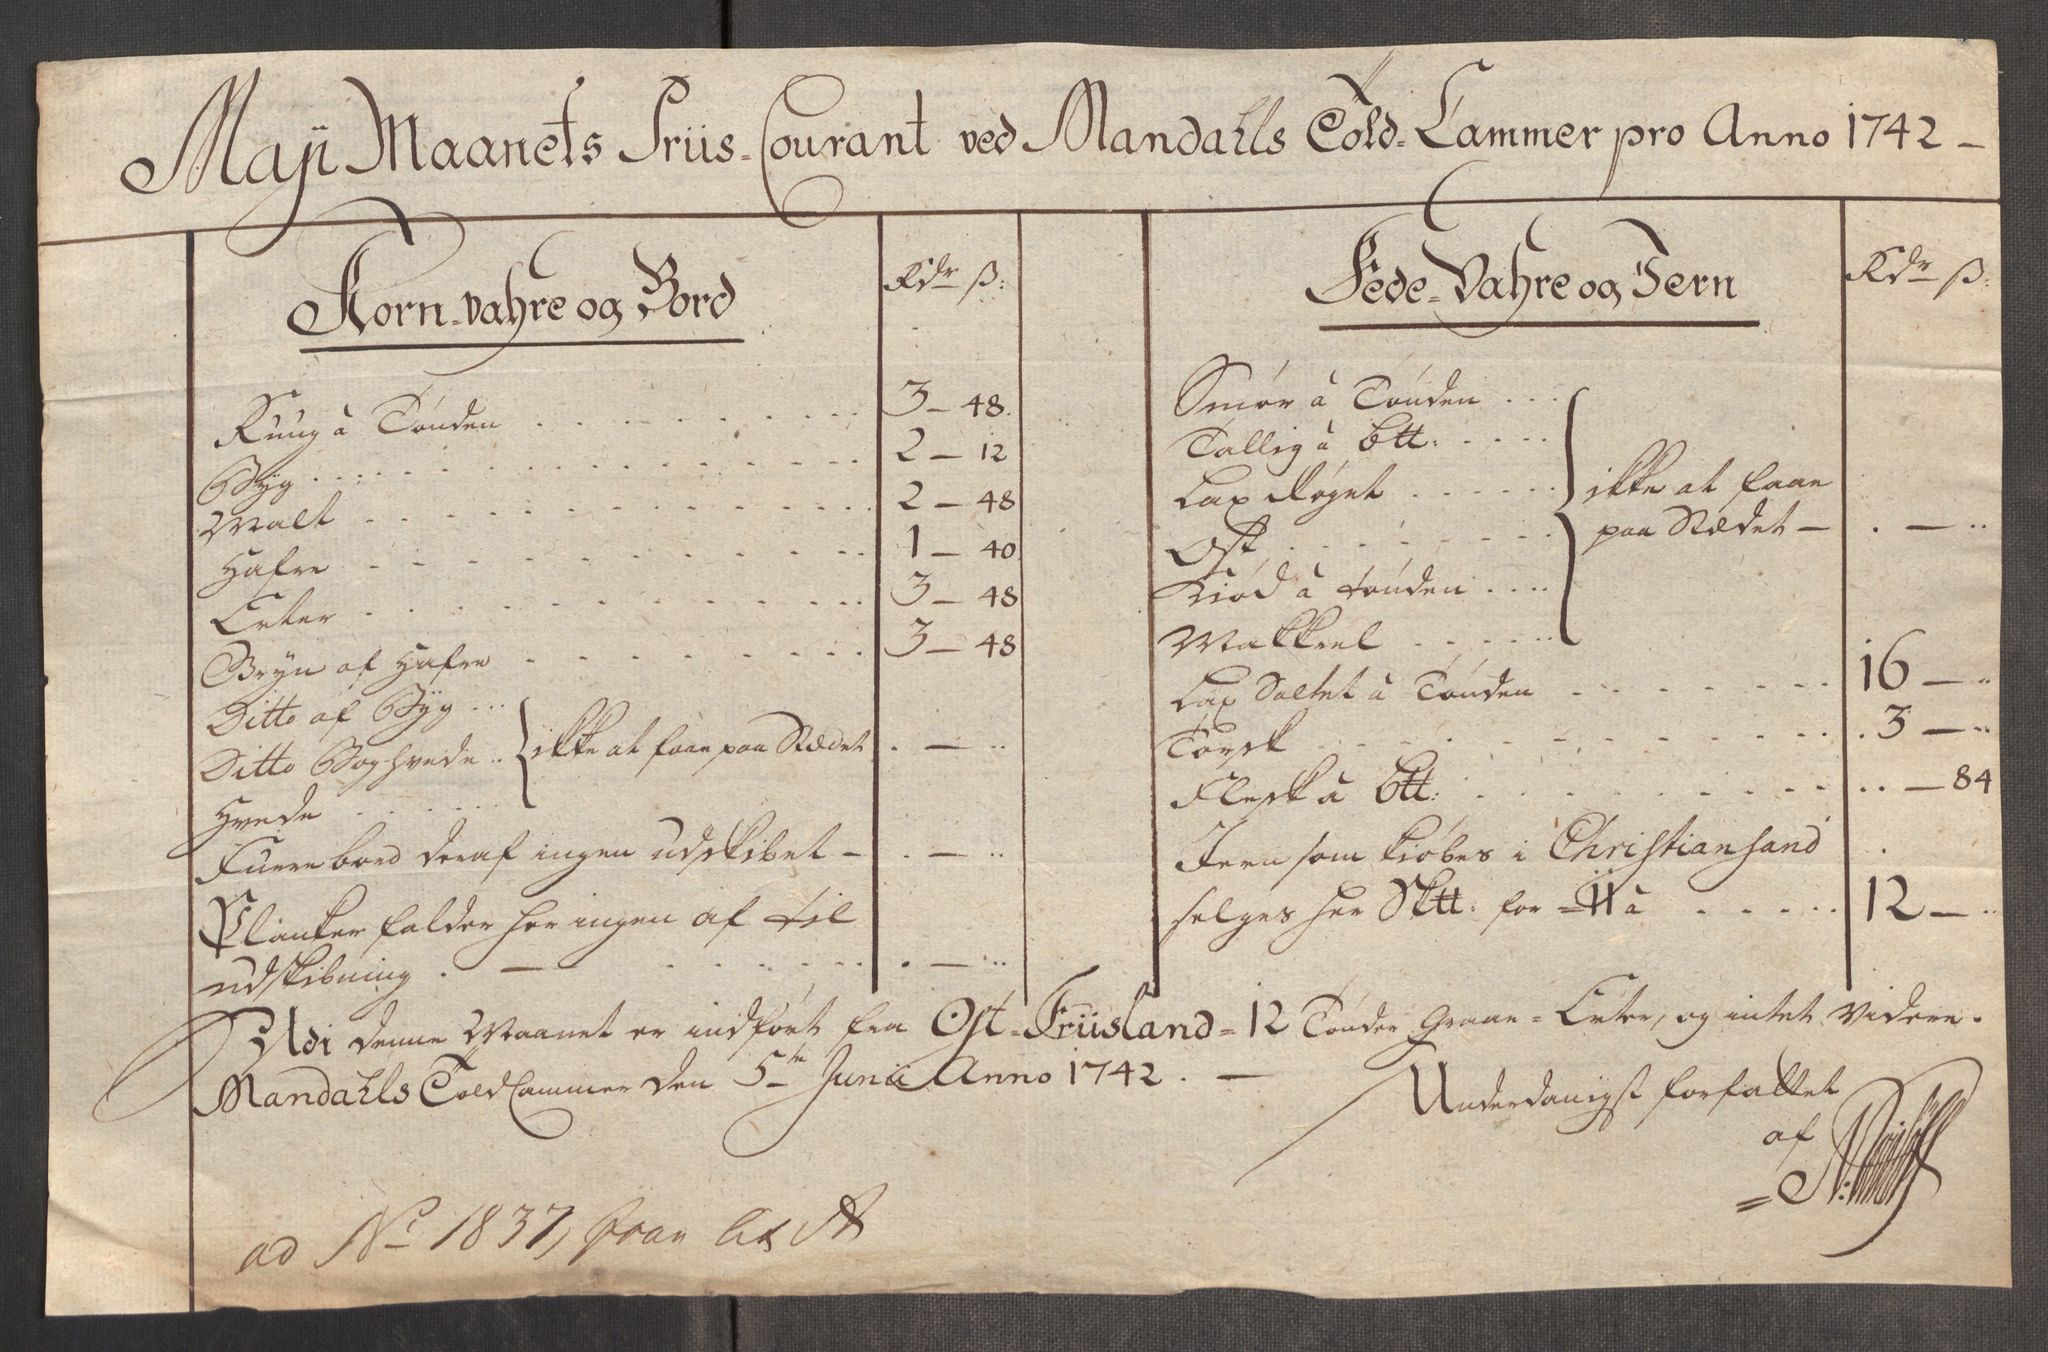 Maji Maanets Priis-Courant ved Mandahls Told-Cammer pro Anno 1742 –
Korn-vahre og Bord
Rdr ß:
Ruug à Tønden . . . 3 – 48.
Byg . . . 2 – 12
Malt . . . 2 – 48
Hafre . . . 1 – 40
Erter . . . 3 – 48
Gryn af Hafre . . . 3 – 48
Ditto af Byg ...
Ditto Boghvede ..
Hvede . . .
ikke at faae paa Stædet . – ..
Fuere bord deraf ingen udskibet – . – ..
Planker falder her ingen af til
udskibning . – . . . . – ..
Fede-Vahre og Jern
Rdr ß:
Smør à Tønden ...
Tallig à btt: ....
Lax Røget . . .
Ost . . .
Kiød à tønden ....
Makkrel . . .
ikke at faae
paa Stædet – . – ..
Lax Saltet à Tønden . . . 16 – ..
Torsk . . . 3 – ..
Flesk à btt: . . . – 84
Jern som kiøbes i Christiansand
selges her Sktt: for = 11 à . . . 12 – ..
Udi denne Maanet er indført fra Ost-Friisland = 12 Tønder Graae-Erter, og intet videre.
Mandahls Told Cammer den 5te Junii Anno 1742. –
Underdanigst forfattet
af
ad No 1837, fra Lit A